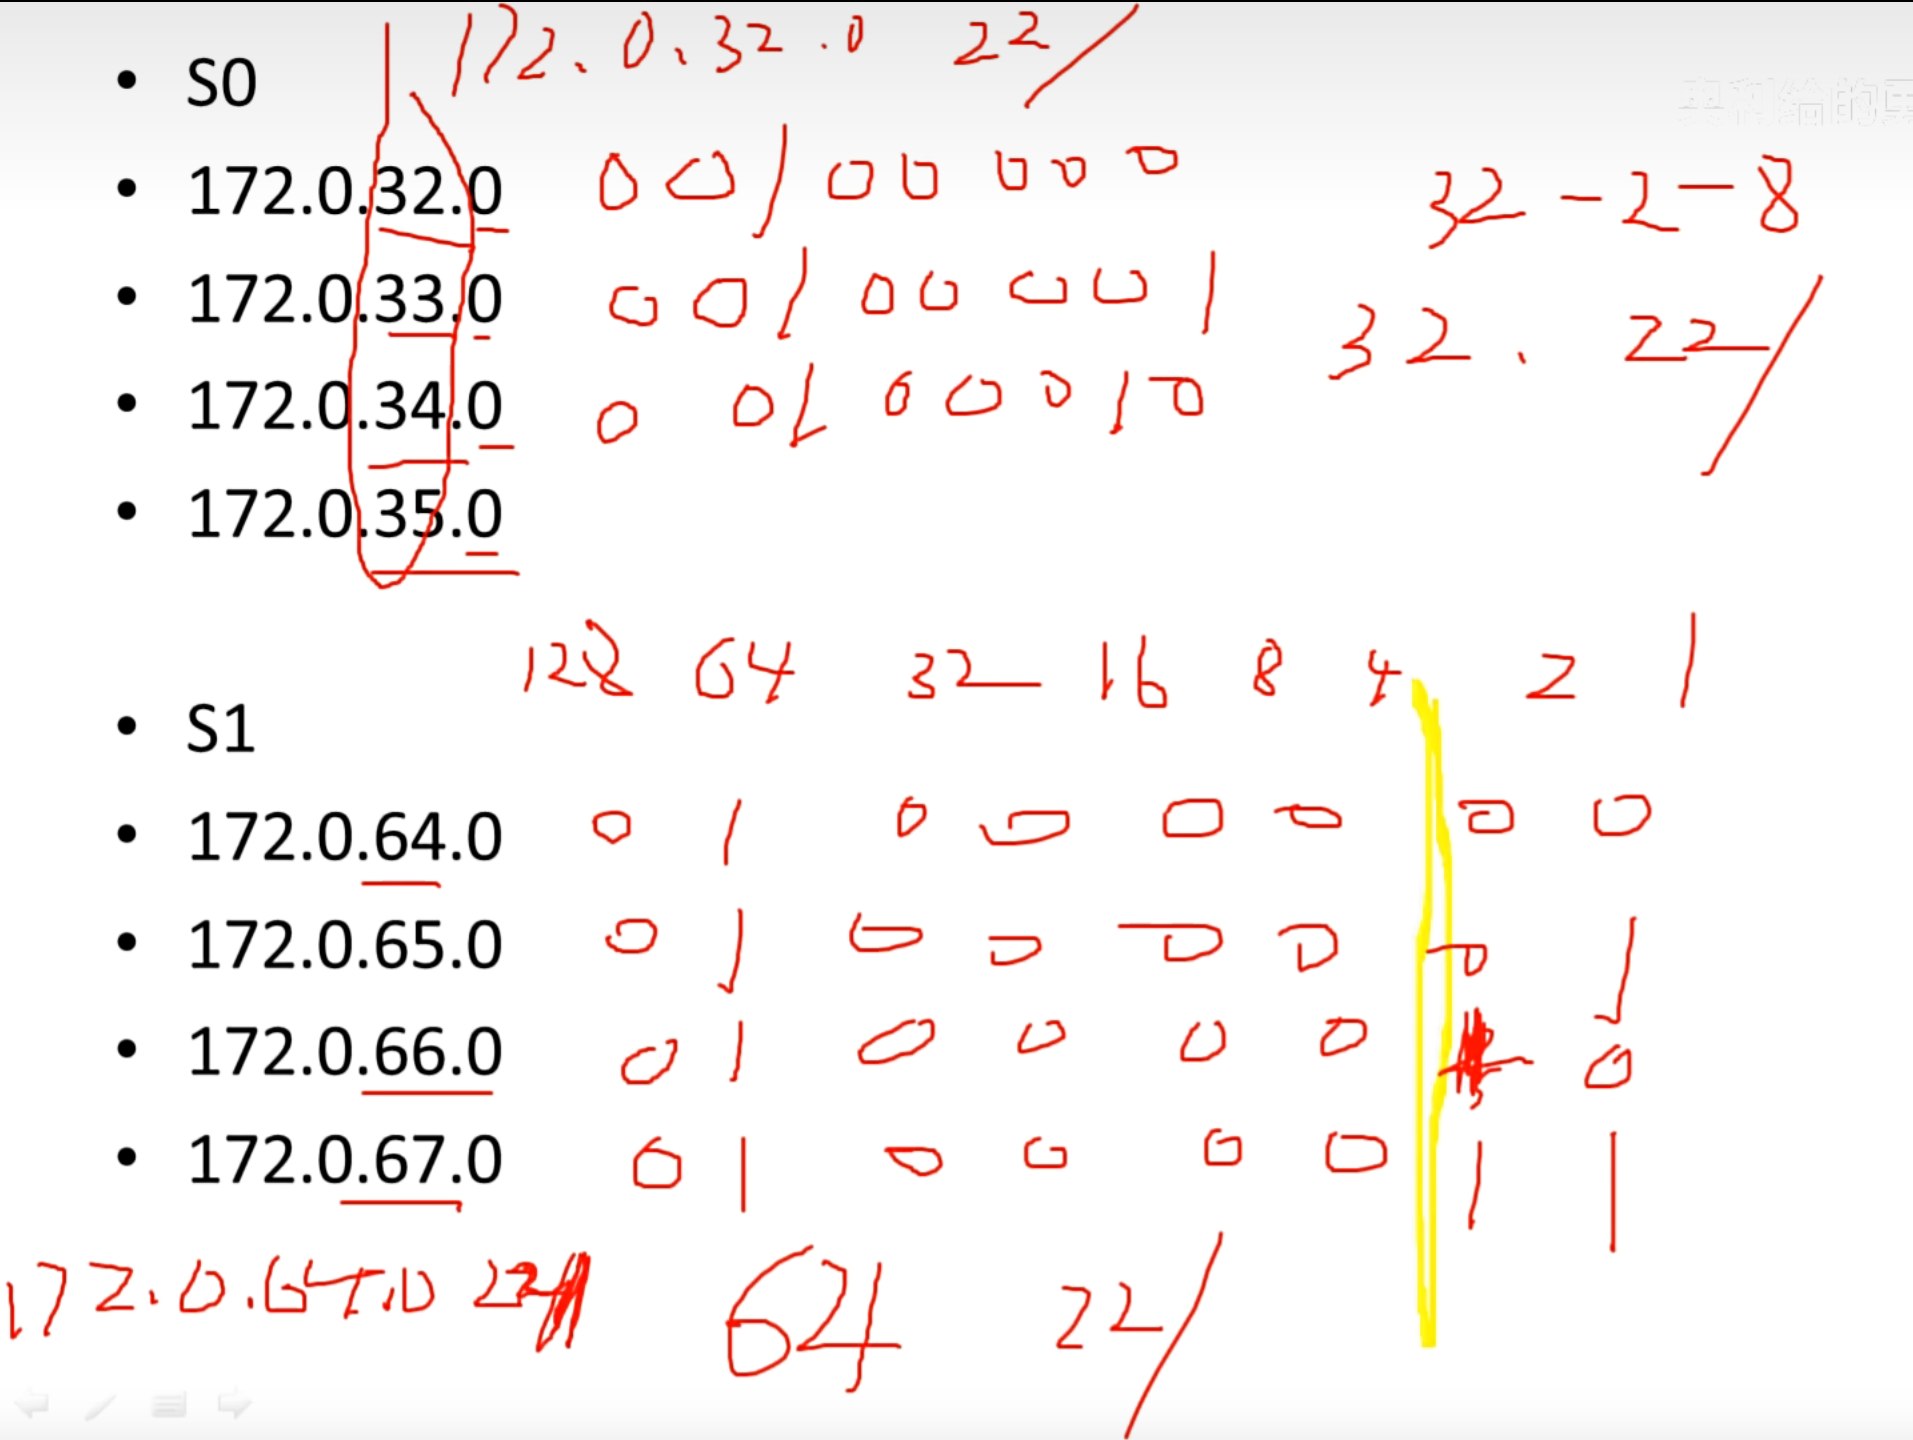 • S0 172.0.32.0 22/
• 172.0.32.0 00100000 32-2-8
• 172.0.33.0 00100001 32. 22/
• 172.0.34.0 00100010
• 172.0.35.0
128 64 32 16 8 4 2 1
• S1
• 172.0.64.0 0 1 0 0 0 0 0 0
• 172.0.65.0 0 1 0 0 0 0 0 1
• 172.0.66.0 0 1 0 0 0 0 0
• 172.0.67.0 0 1 0 0 0 0 1 1
172.0.64.0 22 64 22/